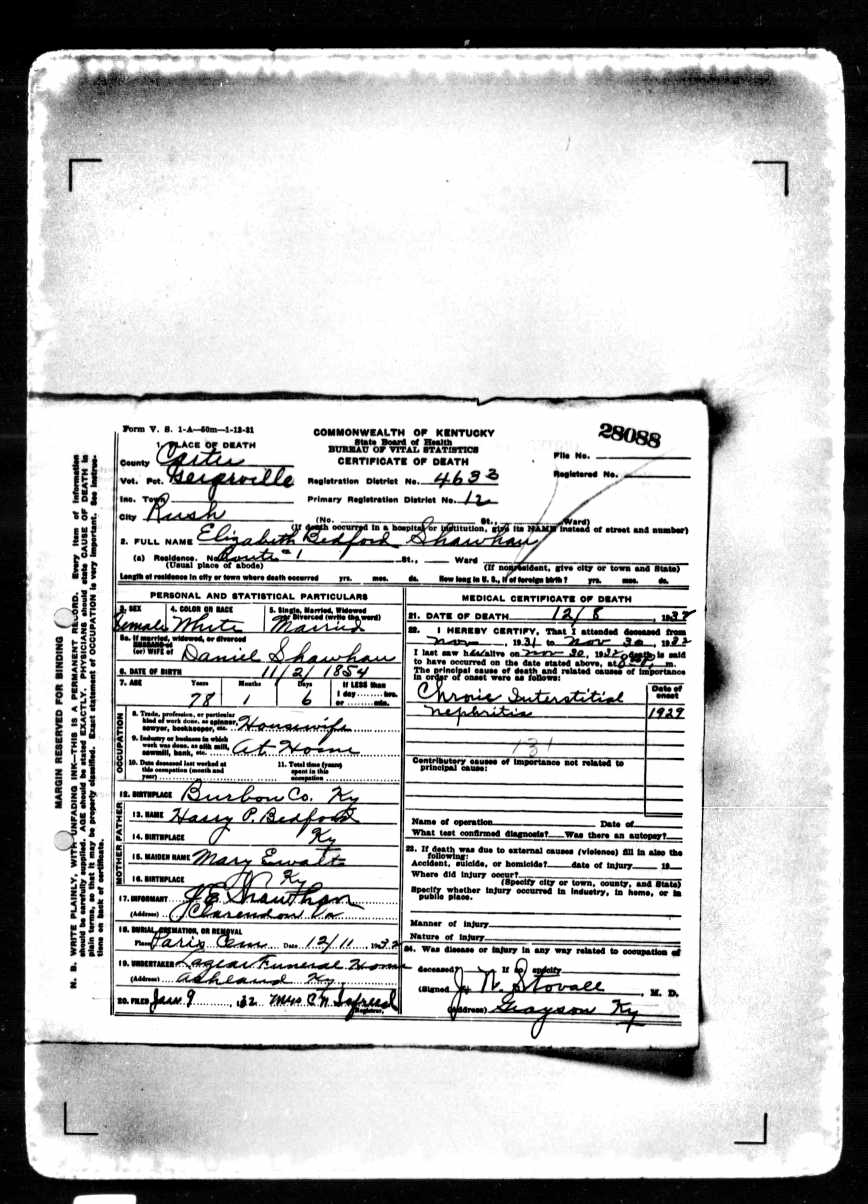 Form V. S. 1-A—50m—1-13-31
COMMONWEALTH OF KENTUCKY
State Board of Health
BUREAU OF VITAL STATISTICS
CERTIFICATE OF DEATH
28088
File No.
Registered No.
1. PLACE OF DEATH
County Carter
Vot. Pct.
Registration District No. 4633
Inc. Town
Primary Registration District No. 12
City Rush
(No. St., Ward)
(If death occurred in a hospital or institution, give its NAME instead of street and number)
2. FULL NAME Elizabeth Bedford Shawhan
(a) Residence. No. Route #1 St., Ward
(Usual place of abode) (If nonresident, give city or town and State)
Length of residence in city or town where death occurred yrs. mos. ds. How long in U. S., if of foreign birth? yrs. mos. ds.
PERSONAL AND STATISTICAL PARTICULARS
3. SEX 4. COLOR OR RACE 5. Single, Married, Widowed
or Divorced (write the word)
Female White Married
5a. If married, widowed, or divorced
HUSBAND of
(or) WIFE of Daniel Shawhan
6. DATE OF BIRTH 11/2/1854
7. AGE Years Months Days If LESS than
1 day hrs.
or min.
78 1 6
OCCUPATION
8. Trade, profession, or particular
kind of work done, as spinner,
sawyer, bookkeeper, etc. Housewife
9. Industry or business in which
work was done, as silk mill,
sawmill, bank, etc. At Home
10. Date deceased last worked at
this occupation (month and
year)
11. Total time (years)
spent in this
occupation
12. BIRTHPLACE Burbon Co. Ky
FATHER
13. NAME Harry P. Bedford
14. BIRTHPLACE Ky
MOTHER
15. MAIDEN NAME Mary Ewalt
16. BIRTHPLACE Ky
17. INFORMANT
(Address) Clarendon Va
18. BURIAL, CREMATION, OR REMOVAL
Place Paris Cem Date 12/11 1932
19. UNDERTAKER Lazear Funeral Home
(Address) Ashland Ky.
20. FILED Jan 9, 32 Mrs C N
Registrar.
MEDICAL CERTIFICATE OF DEATH
21. DATE OF DEATH 12/8, 1932
22. I HEREBY CERTIFY, That I attended deceased from
Nov, 1931 to Nov 30, 1932
I last saw her alive on Nov 30, 1932, death is said
to have occurred on the date stated above, at m.
The principal cause of death and related causes of importance
in order of onset were as follows:
Date of
onset
Chronic Interstitial
Nephritis 1929
131
Contributory causes of importance not related to
principal cause:
Name of operation Date of
What test confirmed diagnosis? Was there an autopsy?
23. If death was due to external causes (violence) fill in also the
following:
Accident, suicide, or homicide? date of injury 19
Where did injury occur?
(Specify city or town, county, and State)
Specify whether injury occurred in industry, in home, or in
public place.
Manner of injury
Nature of injury
24. Was disease or injury in any way related to occupation of
deceased? If so specify
(Signed) J. W. Stovall, M. D.
(Address) Grayson Ky
MARGIN RESERVED FOR BINDING
N. B. WRITE PLAINLY, WITH UNFADING INK—THIS IS A PERMANENT RECORD. Every item of information
should be carefully supplied. AGE should be stated EXACTLY. PHYSICIANS should state CAUSE OF DEATH in
plain terms, so that it may be properly classified. Exact statement of OCCUPATION is very important. See instruc-
tions on back of certificate.